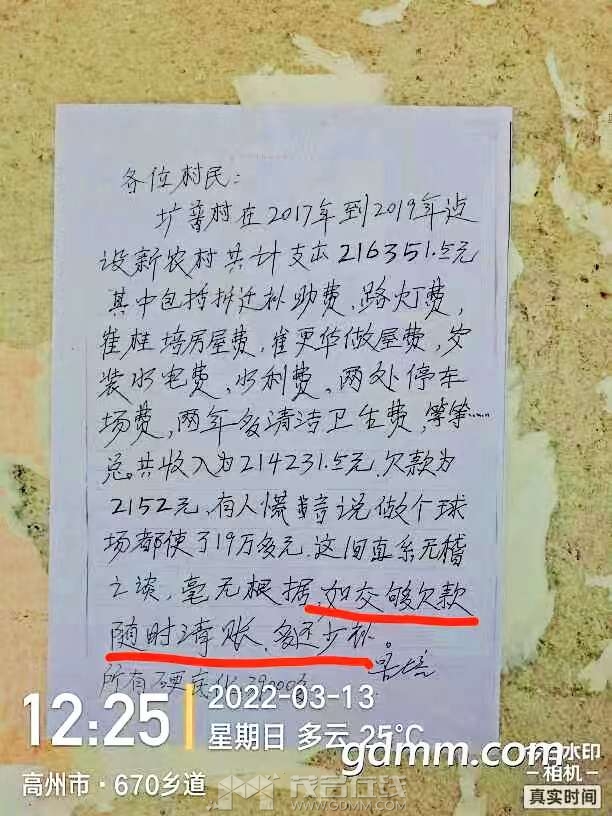 各位村民：
圹鲁村在2017年到2019年边
设新农村共计支出216351.5元
其中包括拆迁补助费，路灯费，
崔桂培房屋费，崔更华做屋费，安
装水电费，水利费，两处停车
场费，两年多清洁卫生费，等等……
总共收入为214231.5元.欠款为
2152元，有人慌 说做个球
场都使了19万多元.这间直系无稽
之谈，毫无根据，如交够欠款
随时清账，多还少补。
所有硬底化
12:25
2022-03-13
星期日 多云 25℃
高州市·670乡道
gdmm.com
水印
相机
真实时间
茂名在线
WWW.GDMM.COM